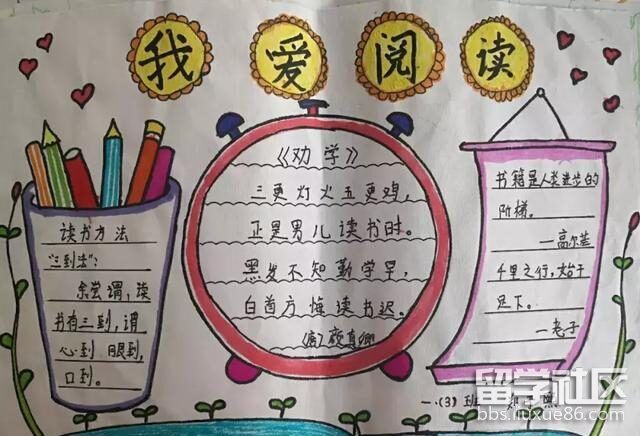 我爱阅读
读书方法
"三到法"：
余尝谓，读
书有三到，谓
心到 眼到，
口到。
《劝学》
三更灯火五更鸡，
正是男儿读书时。
黑发不知勤学早，
白首方悔读书迟。
(唐)颜真卿
书籍是人类进步的
阶梯。
—高尔基
千里之行，始于
足下。
—老子
一(3)班
留学社区
bbs.liuxue86.com